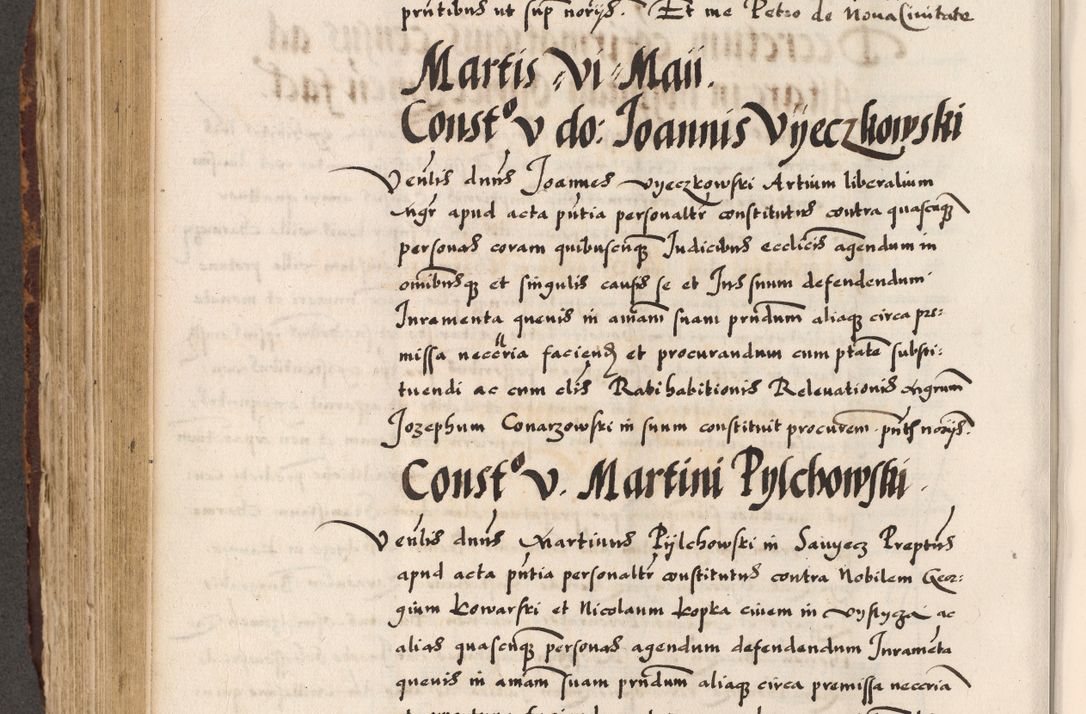 prntibus ut sup norijs. Et me Petro de Nova Civitate
Martis vi Maii.
Constº v do: Joannis Vÿeczkowski
Venlis dnus Joannes Vyeczkowski Artium liberalium
Mgr apud acta pntia personaltr constitutus contra quascuq
personas coram quibuscunq Judicibus ecclicis agendum in
omibusq et singulis causis se et Jus suum defendendum
Juramenta quevis in aiam suam prndum aliaq circa pre:
missa neccria faciend et procurandum cum ptate substi:
tuendi ac cum clis Ratihabitionis Relevationis Mgrum
Jozephum Conarzowski in suum constituit procurem pntb norijs.
Constº v. Martini Pylchowski.
Venlis dnus Martinus Pÿlchowski in Sanyecz Preptus
apud acta pntia personaltr constitutus contra Nobilem Geor:
gium Kowarski et Nicolaum Kopka civem in Vystycza ac
alias quascunq personas agendum defendendum Jurameta
quevis in aniam suam prndum aliaq circa premissa neccria